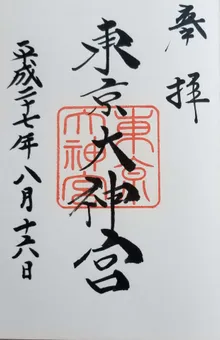 奉拝
東京大神宮
東京大神宮
平成二十七年八月十六日